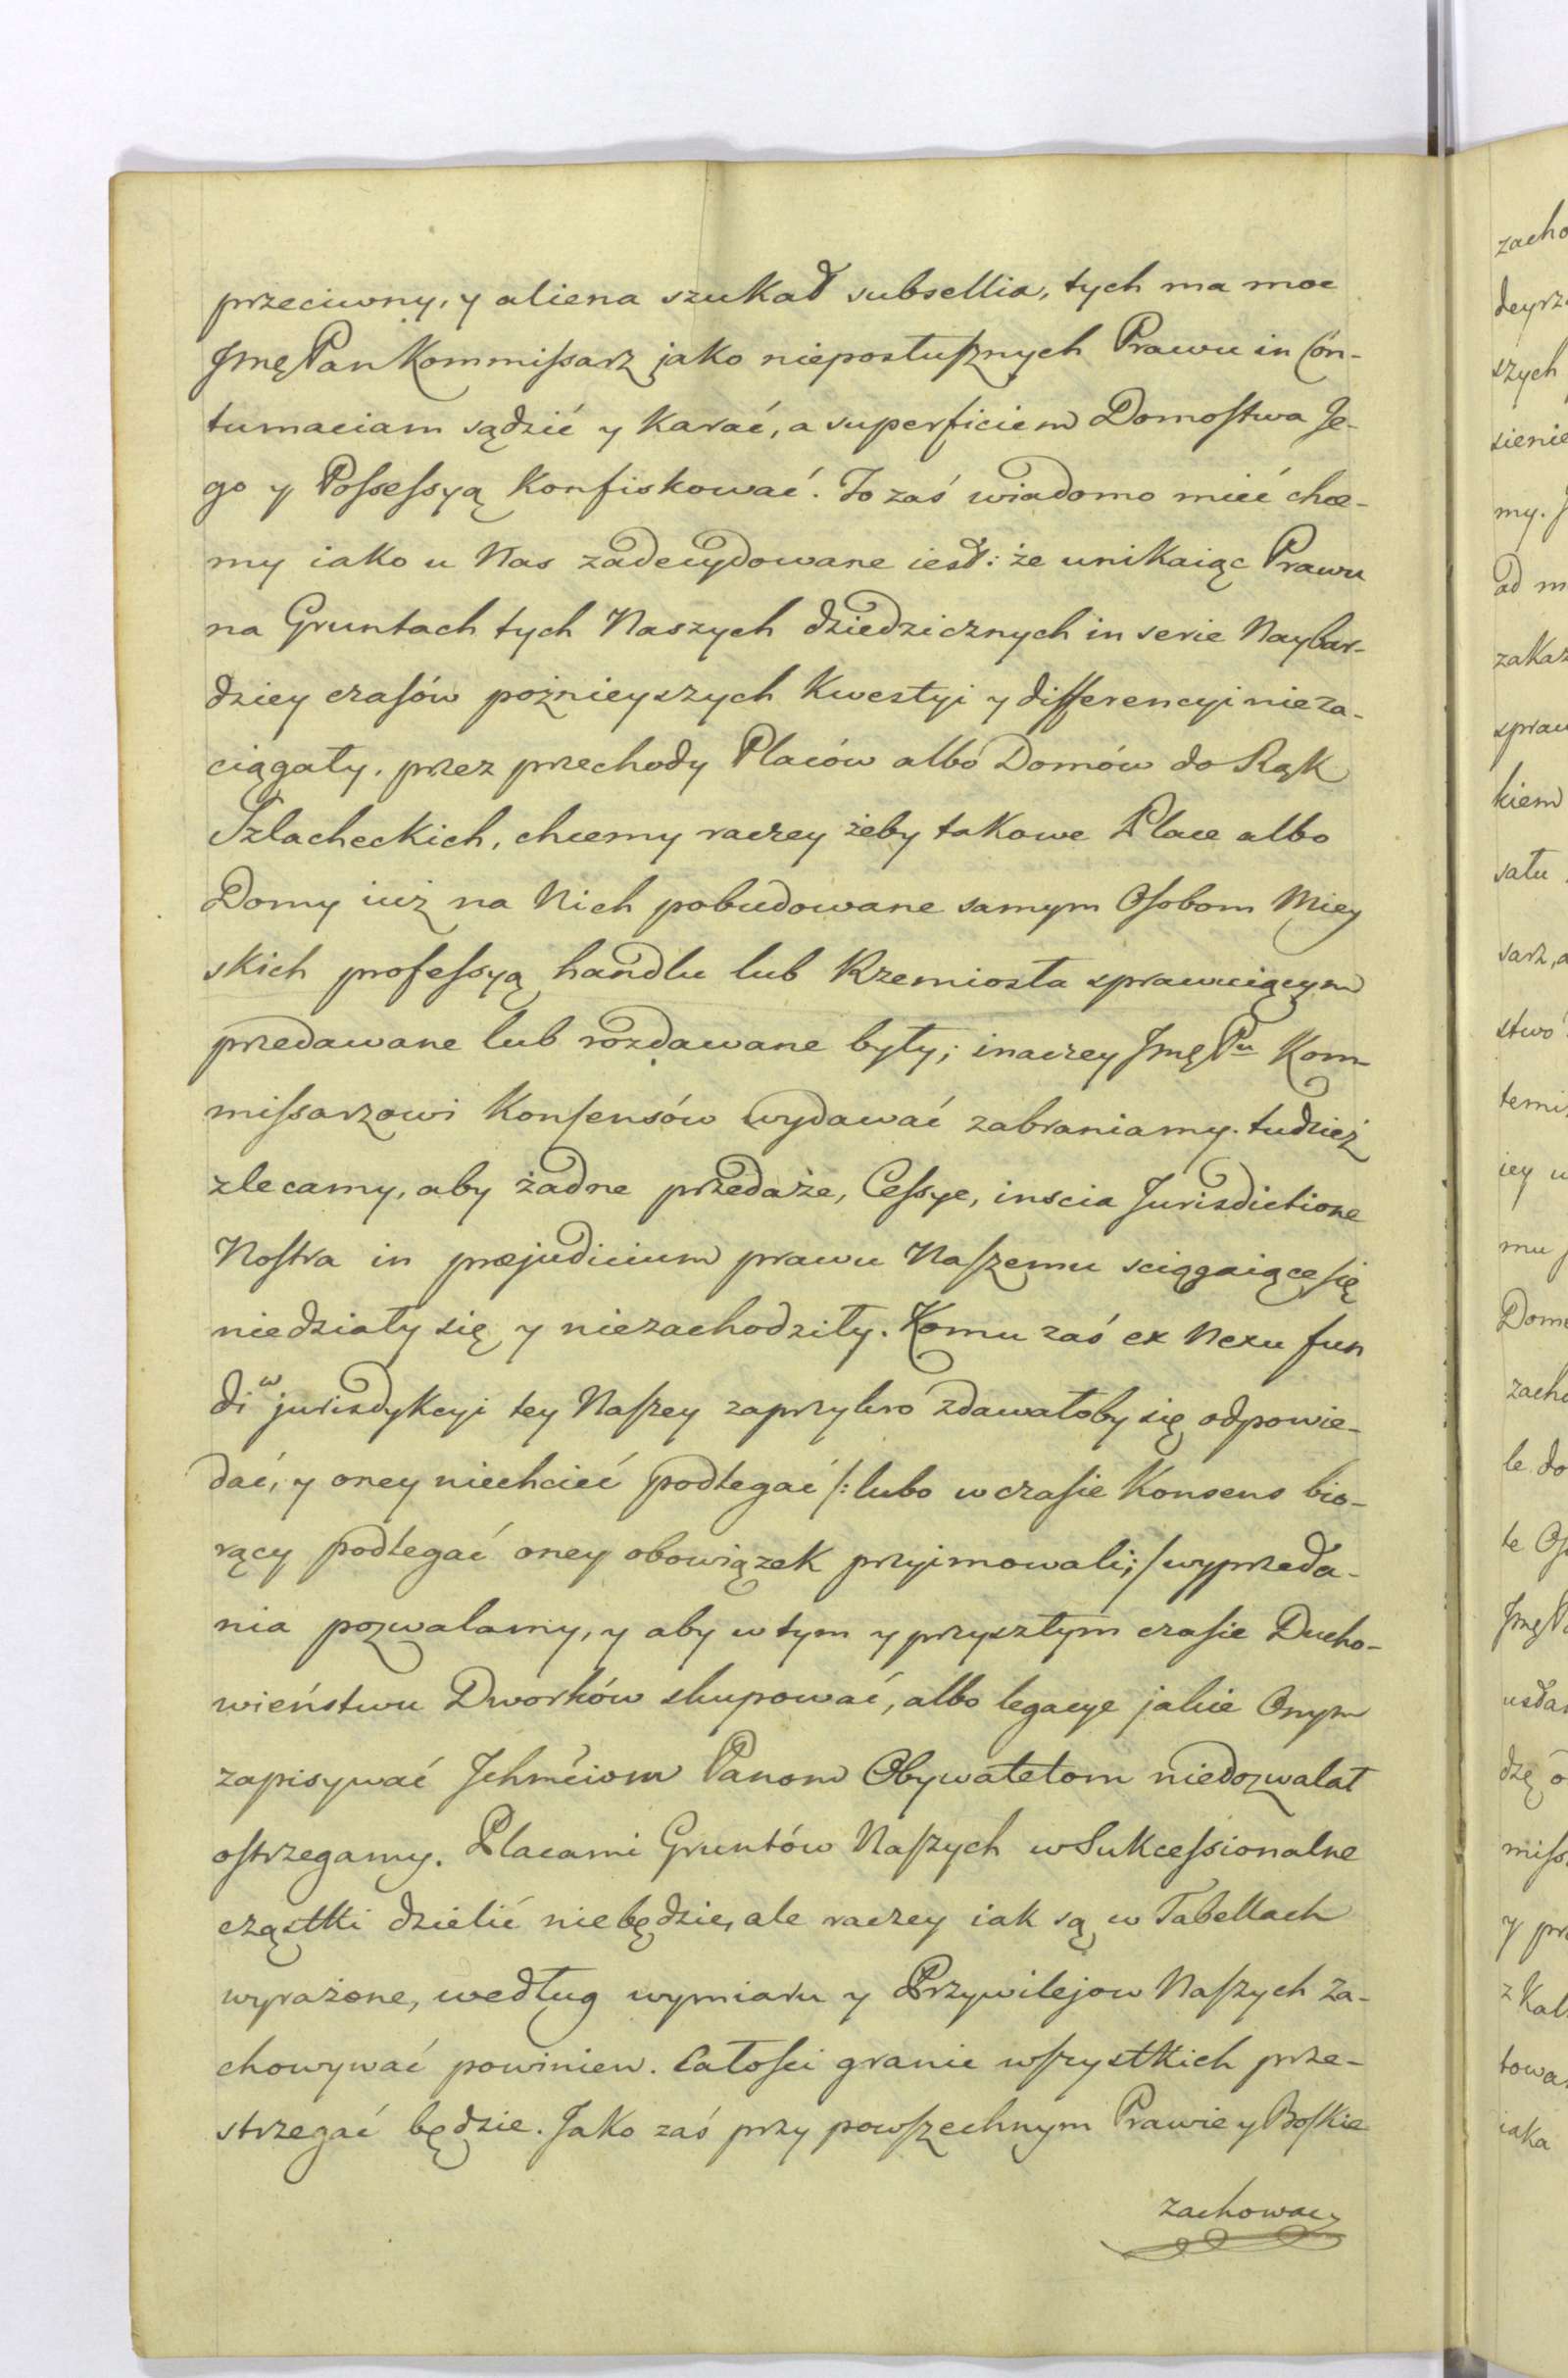 przeciwny, y aliena szukał subsellia, tych ma moc
Jmę Pan Kommissarz jako nieposłusznych Prawu in Con-
tumaciam sądzić y karać, a superficiem Domostwa Je-
go y Possessyą Konfiskować. To zaś wiadomo mieć chce-
my iako u Nas zadecydowane iest: że unikaiąc Prawu
na Gruntach tych Naszych dziedzicznych in serie Naybar-
dziey czasów poźnieyszych Kwestyi y differencyi nie za-
ciągały, przez przechody Placów albo Domów do Rąk
Szlacheckich, chcemy raczey żeby takowe Place albo
Domy iuż na Nich pobudowane samym Osobom Miey
skich professyą handlu lub Rzemiosła sprawuiącym
przedawane lub rozdawane były; inaczey Jmę Pu Kom-
missarzowi Konsensów wydawać zabraniamy. tudzież
zlecamy, aby żadne przedaże, Cessye, inscia Jurisdictione
Nostra in præjudicium prawu Naszemu sciągaiące się
niedziały się y niezachodziły. Komu zaś ex Nexu fun
di w jurisdykcyi tey Naszey zaprzykro zdawałoby się odpowie-
dać, y oney niechcieć podlegać /: lubo w czasie Konsens bio-
rący podlegać oney obowiązek przyimowali; / wyprzeda-
nia pozwalamy, y aby w tym y przyszłym czasie Ducho-
wieństwu Dworków skupować, albo legacye jakie Onym
zapisywać Jchmćiom Panom Obywatelom niedozwalał
ostrzegamy. Placami Gruntów Naszych w Sukcessionalne
cząstki dzielić nie będzie, ale raczey iak są w Tabellach
wyrażone, według wymiaru y Przywilejow Naszych za-
chowywać powinien. Całości granic wszystkich prze-
strzegać będzie. Jako zaś przy powszechnym Prawie y Boskie
zachowac
zacho
szych
sienie
my. J
ad m
zakaz
spraw
kiem
satu
sarz, a
stwo
iey u
mu
Dom
zach
le do
te Os
dzę o
miss
y pr
z Kal
towa
iaka